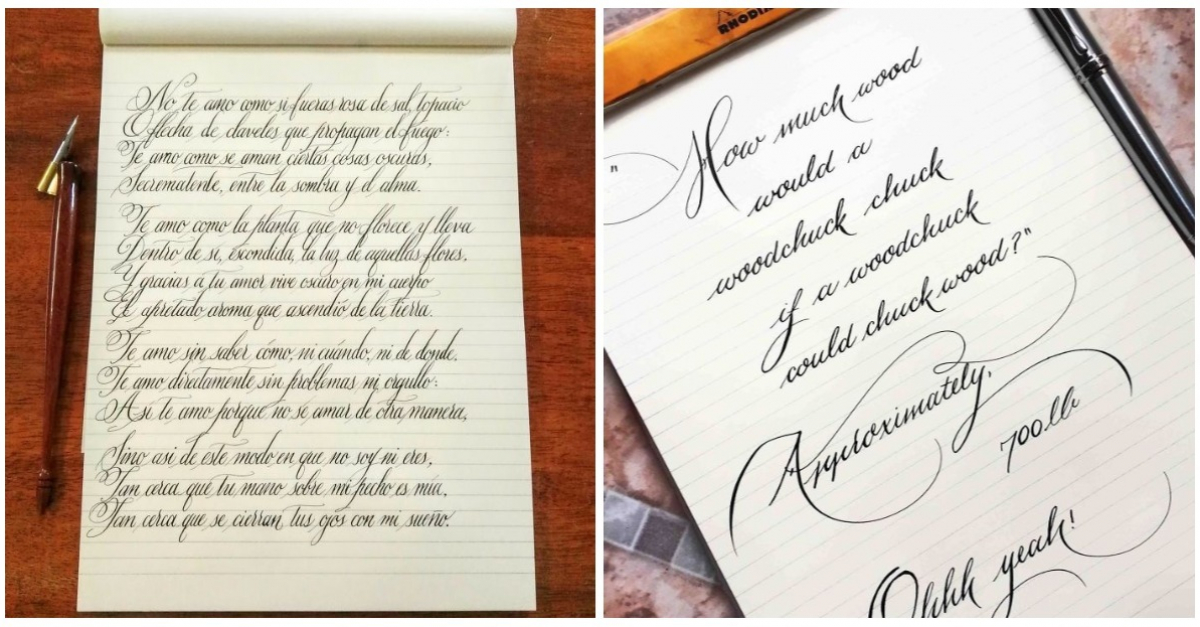 No te amo como si fueras rosa de sal, topacio
O flecha de claveles que propagan el fuego:
Te amo como se aman ciertas cosas oscuras,
Secrematente, entre la sombra y el alma.
Te amo como la planta que no florece y lleva
Dentro de sí, escondida, la luz de aquellas flores,
Y gracias a tu amor vive oscuro en mi cuerpo
El apretado aroma que ascendió de la tierra.
Te amo sin saber cómo, ni cuándo, ni de donde,
Te amo directamente sin problemas ni orgullo:
Así te amo porque no sé amar de otra manera,
Sino así de este modo en que no soy ni eres,
Tan cerca que tu mano sobre mi pecho es mía,
Tan cerca que se cierran tus ojos con mi sueño.
RHODIA
"How much wood
would a
woodchuck chuck
if a woodchuck
could chuck wood?"
Approximately,
700lb
Ohhh yeah!